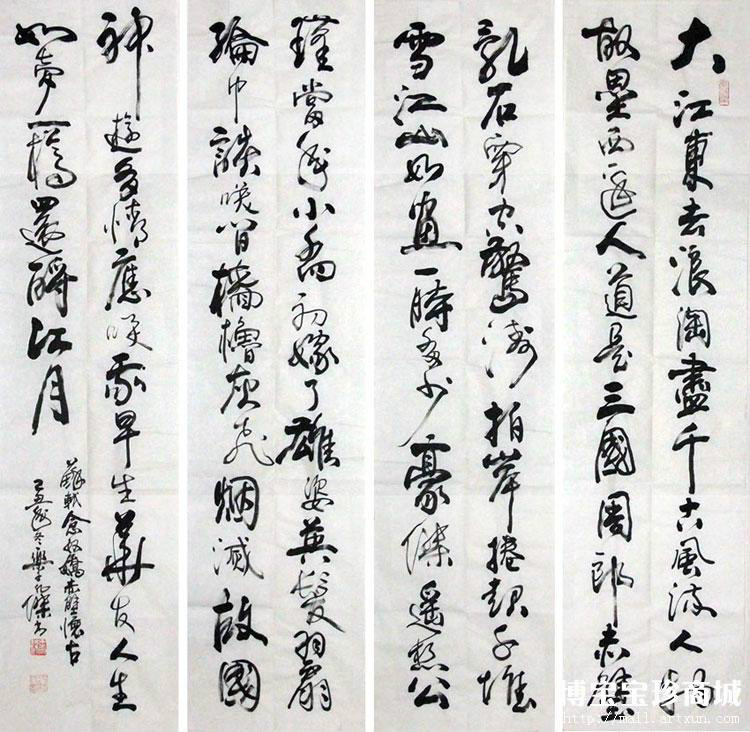 大江東去浪淘盡千古風流人物
故壘西邊人道是三國周郎赤壁
亂石穿空驚濤拍岸捲起千堆
雪江山如畫一時多少豪傑遙想公
瑾當年小喬初嫁了雄姿英發羽扇
綸巾談咲間檣櫓灰飛烟滅故國
神遊多情應咲我早生華髮人生
如夢一樽還酹江月
蘇軾念奴嬌赤壁懷古
己丑歲冬樂 傑書
博宝宝珍商城
http://mall.artxun.com